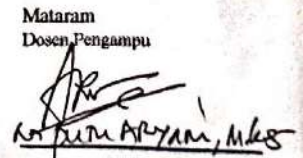 Mataram
Dosen Pengampu
ARYANI, M.Kes